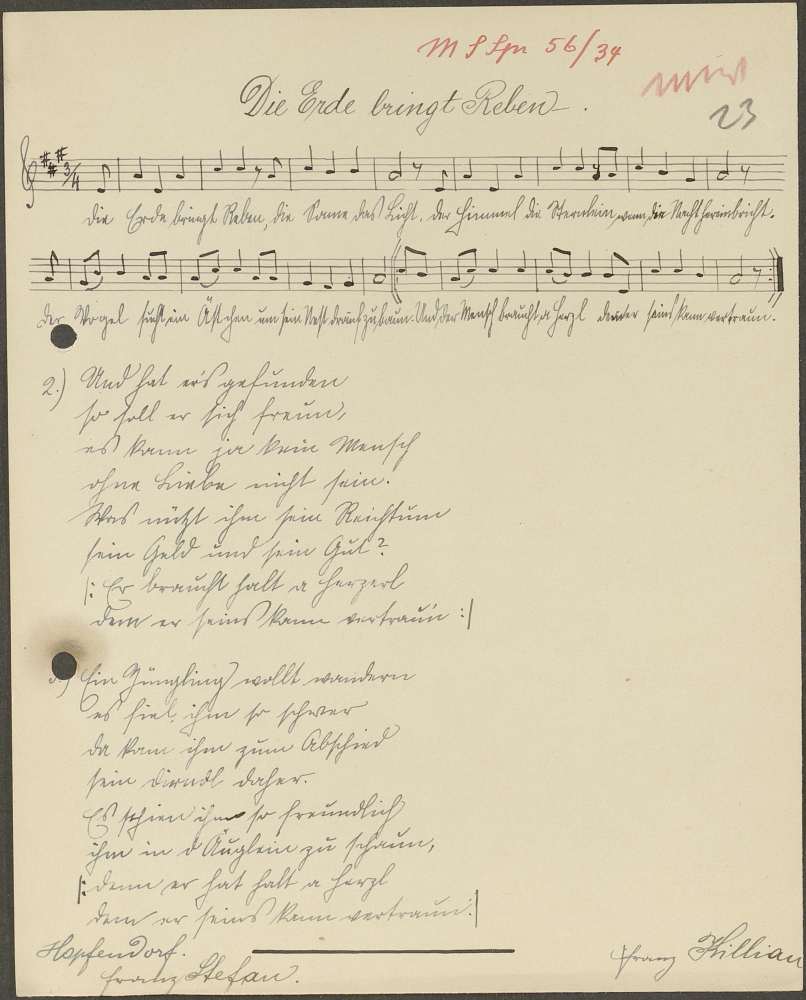 56/34
23
Die Erde bringt Reben.
3/4
die Erde bringt Reben, die Sonne das Licht, der Himmel die Sternlein, wenn die Nacht hereinbricht.
der Vogel sucht ein Ästchen um sein Nest drauf zu baun. Und der Mensch braucht a Herzl dem er seins kann vertraun.
2.) Und hat er's gefunden
so soll er sich freun,
es kann ja kein Mensch
ohne Liebe nicht sein.
Was nützt ihm sein Reichtum
sein Geld und sein Gut?
|: Er braucht halt a Herzerl
dem er seins kann vertraun :|
3.) Ein Jüngling wollt wandern
es fiel ihm so schwer
da kam ihm zum Abschied
sein Dirndl daher.
Es schien ihm so freundlich
ihm in d Äuglein zu schaun,
|: denn er hat halt a Herzl
dem er seins kann vertraun :|
Hopfendorf.
Franz Stefan.
Franz Killian